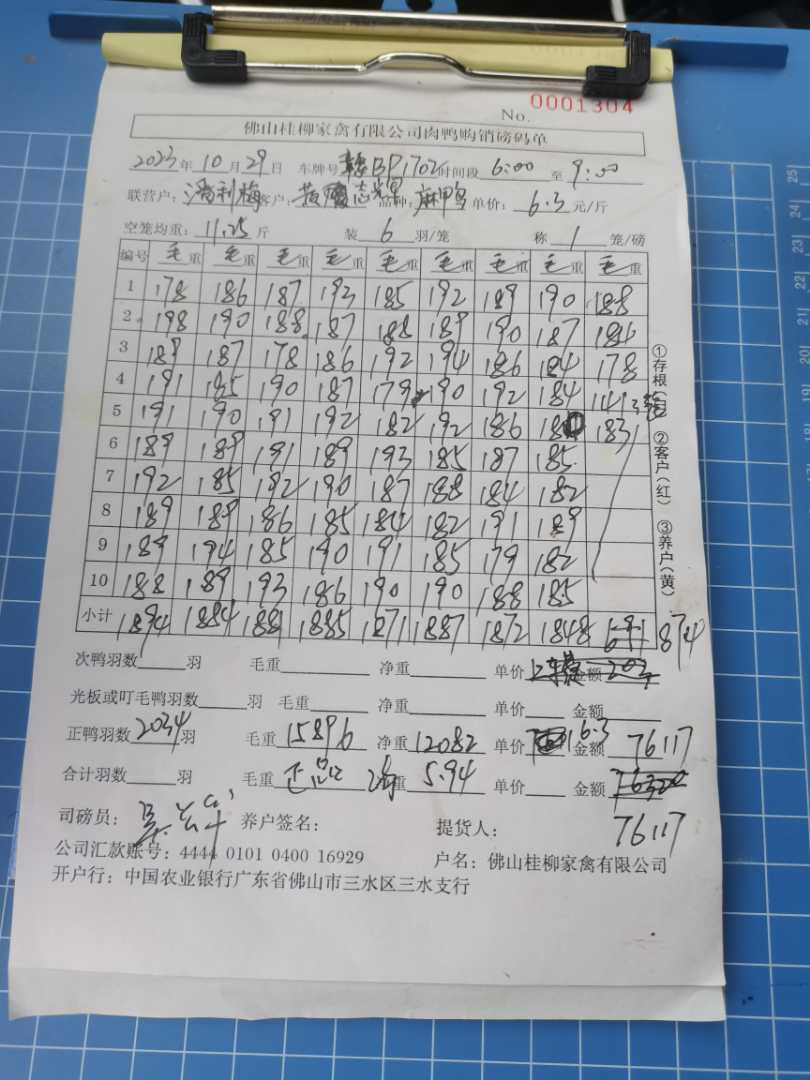 No. 0001304
佛山桂柳家禽有限公司肉鸭购销磅码单
2023年10月29日 车牌号 BP1702时间段 6:00 至 9:00
联营户：潘利梅 客户：黄 志 品种：麻鸭 单价：6.3元/斤
空笼均重：11.25斤 装6羽/笼 称1笼/磅
编号 毛重 毛重 毛重 毛重 毛重 毛重 毛重 毛重 毛重
1 178 186 187 193 185 192 189 190 188
2 198 190 188 187 188 189 190 187 184
3 189 187 178 186 192 194 186 184 178
4 191 185 190 187 179 190 192 184 141 3
5 191 190 191 192 182 192 186 183
6 189 189 191 189 193 185 187 185
7 192 185 192 190 187 188 184 182
8 189 189 186 185 184 182 191 189
9 189 194 185 190 191 185 179 182
10 188 189 193 186 190 190 188 185
小计 1894 1884 1881 1885 1871 1887 1872 1848 691 874
①存根（白） ②客户（红） ③养户（黄）
次鸭羽数 羽 毛重 净重 单价 金额
光板或叮毛鸭羽数 羽 毛重 净重 单价 金额
正鸭羽数2034羽 毛重15896 净重12082 单价6.3 金额76117
合计羽数 羽 毛重 净重5.94 单价 金额76320
76117
司磅员： 养户签名： 提货人：
公司汇款账号：4444 0101 0400 16929 户名：佛山桂柳家禽有限公司
开户行：中国农业银行广东省佛山市三水区三水支行